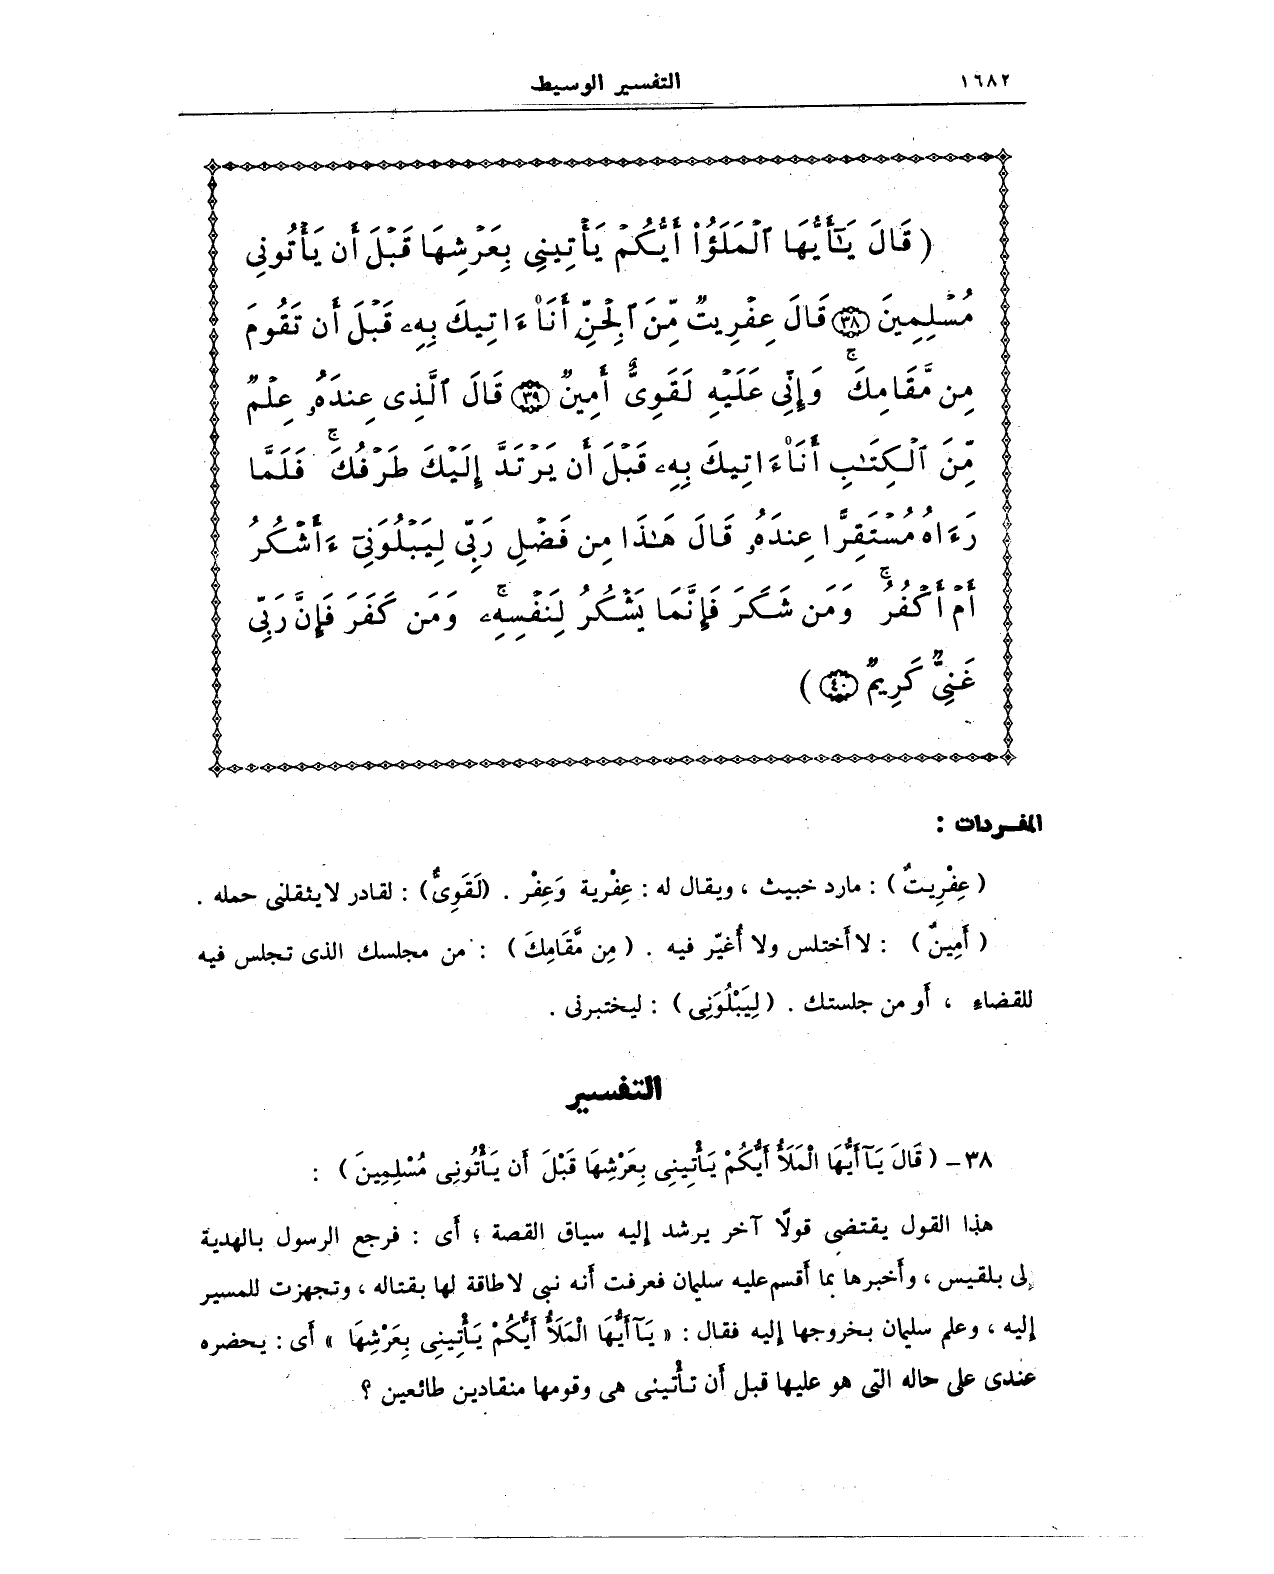 ١٦٨٢ التفسير الوسيط
( قَالَ يَـٰٓأَيُّهَا ٱلْمَلَؤُا۟ أَيُّكُمْ يَأْتِينِى بِعَرْشِهَا قَبْلَ أَن يَأْتُونِى
مُسْلِمِينَ ﴿٣٨﴾ قَالَ عِفْرِيتٌ مِّنَ ٱلْجِنِّ أَنَا۠ ءَاتِيكَ بِهِۦ قَبْلَ أَن تَقُومَ
مِن مَّقَامِكَ ۖ وَإِنِّى عَلَيْهِ لَقَوِىٌّ أَمِينٌ ﴿٣٩﴾ قَالَ ٱلَّذِى عِندَهُۥ عِلْمٌ
مِّنَ ٱلْكِتَـٰبِ أَنَا۠ ءَاتِيكَ بِهِۦ قَبْلَ أَن يَرْتَدَّ إِلَيْكَ طَرْفُكَ ۚ فَلَمَّا
رَءَاهُ مُسْتَقِرًّا عِندَهُۥ قَالَ هَـٰذَا مِن فَضْلِ رَبِّى لِيَبْلُوَنِىٓ ءَأَشْكُرُ
أَمْ أَكْفُرُ ۚ وَمَن شَكَرَ فَإِنَّمَا يَشْكُرُ لِنَفْسِهِۦ ۚ وَمَن كَفَرَ فَإِنَّ رَبِّى
غَنِىٌّ كَرِيمٌ ﴿٤٠﴾ )
المفردات :
( عِفْرِيتٌ ) : مارد خبيث ، ويقال له : عِفْرية وَعِفْر . ( لَقَوِىٌّ ) : لقادر لا يثقلنى حمله .
( أَمِينٌ ) : لا أختلس ولا أُغيّر فيه . ( مِن مَّقَامِكَ ) : من مجلسك الذى تجلس فيه
للقضاء ، أو من جلستك . ( لِيَبْلُوَنِى ) : ليختبرنى .
التفسير
٣٨ - ( قَالَ يَـآ أَيُّهَا الْمَلَأُ أَيُّكُمْ يَأْتِينِى بِعَرْشِهَا قَبْلَ أَن يَأْتُونِى مُسْلِمِينَ ) :
هذا القول يقتضى قولًا آخر يرشد إليه سياق القصة ؛ أى : فرجع الرسول بالهدية
إلى بلقيس ، وأخبرها بما أقسم عليه سليمان فعرفت أنه نبى لا طاقة لها بقتاله ، وتجهزت للمسير
إليه ، وعلم سليمان بخروجها إليه فقال : « يَـآ أَيُّهَا الْمَلَأُ أَيُّكُمْ يَأْتِينِى بِعَرْشِهَا » أى : يحضره
عندى على حاله التى هو عليها قبل أن تأتينى هى وقومها منقادين طائعين ؟